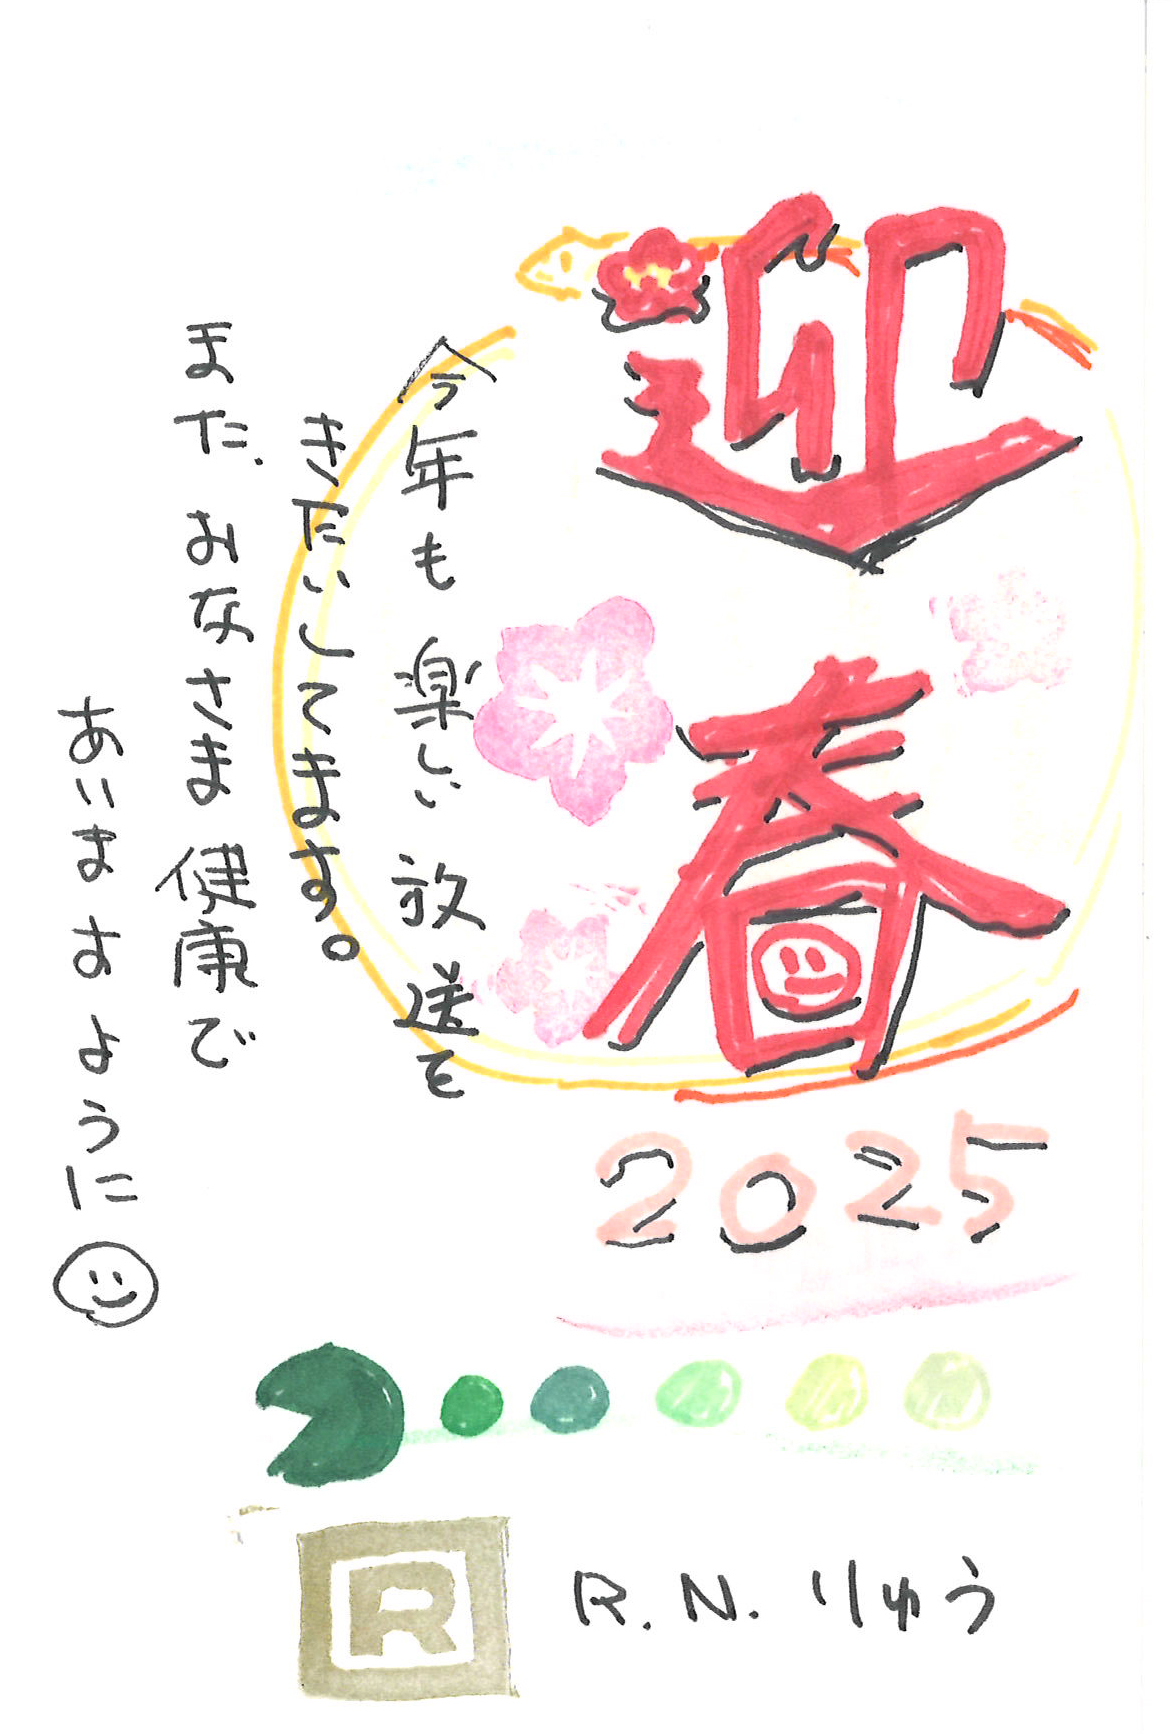 迎春
今年も楽しい放送を
きたいしてます。
また、おなさま健康で
あいますように
2025
R
R.N. りゅう